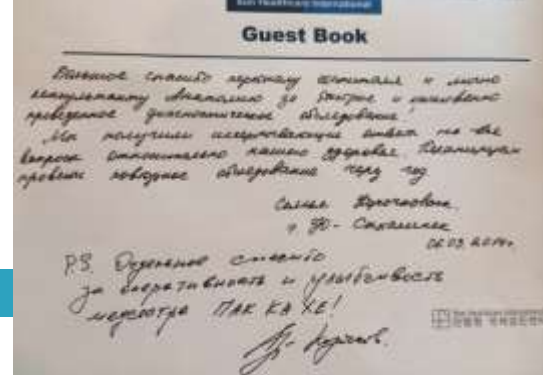 Sun Healthcare International
Guest Book
Большое спасибо персоналу госпиталя и лично
консультанту Анатолию за быстрое и
проведенное диагностическое обследование
Мы получили исчерпывающие ответы на все
вопросы относительно нашего здоровья. Планируем
провести повторное обследование через год
Семья
г. Ю-Сахалинск
P.S. Отдельное спасибо
за оперативность и улыбчивость
медсестре ПАК КА ХЕ!